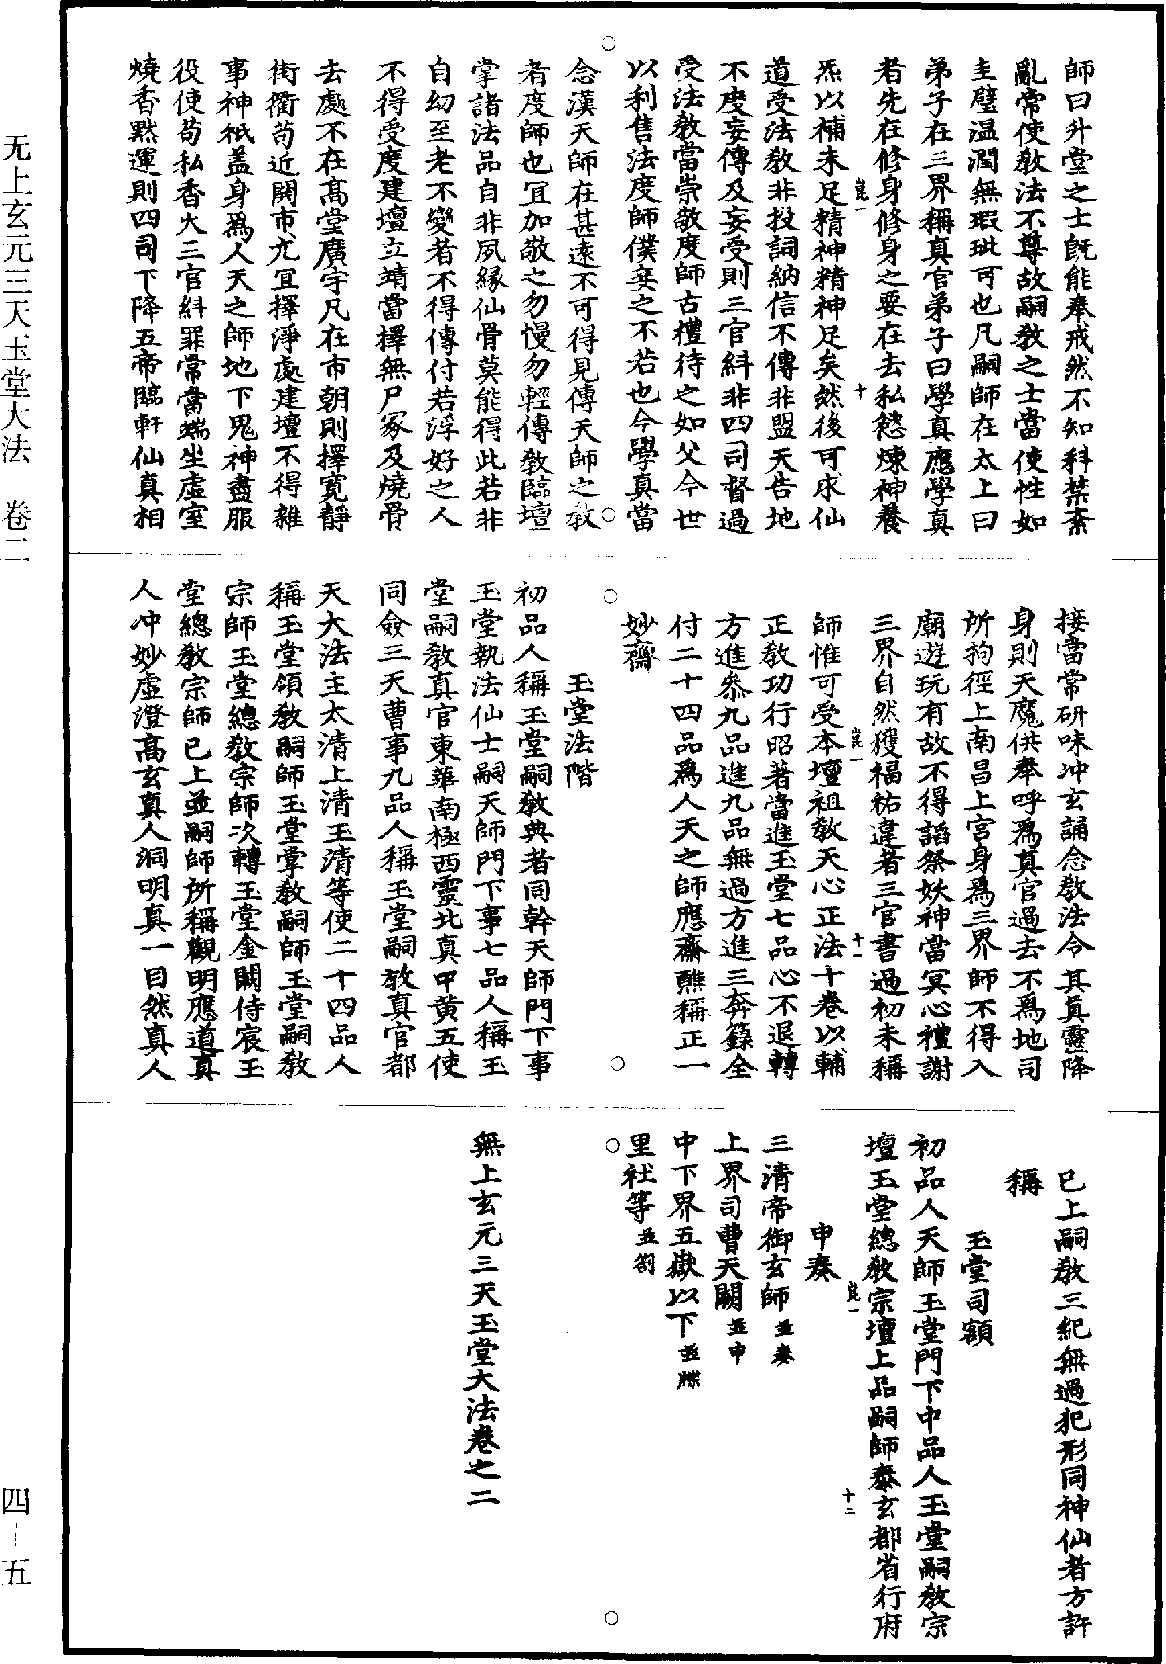 无上玄元三天玉堂大法 卷二
四-五
師曰升堂之士既能奉戒然不知科禁紊
亂常使教法不尊故嗣教之士當使性如
圭璧温潤無瑕玼可也凡嗣師在太上曰
弟子在三界稱真官弟子曰學真應學真
者先在修身修身之要在去私慾煉神養
炁以補未足精神精神足矣然後可求仙
道受法教非投詞納信不傳非盟天告地
不度妄傳及妄受則三官糾非四司督過
受法教當崇敬度師古禮待之如父今世
以利售法度師僕妾之不若也今學真當
念漢天師在甚遠不可得見傳天師之教
者度師也宜加敬之勿慢勿輕傳教臨壇
掌諸法品自非夙緣仙骨莫能得此若非
自幼至老不變者不得傳付若浮好之人
不得受度建壇立靖當擇無尸冢及燒骨
去處不在高堂廣宇凡在市朝則擇寬静
街衢苟近闤市尤宜擇淨處建壇不得雜
事神祇蓋身爲人天之師地下鬼神盡服
役使苟私香火三官糾罪常當端坐虛室
燒香默運則四司下降五帝臨軒仙真相
接當常研味冲玄誦念教法令其真靈降
身則天魔供奉呼爲真官過去不爲地司
所拘徑上南昌上宮身爲三界師不得入
廟遊玩有故不得謟祭妖神當冥心禮謝
三界自然獲福祐違者三官書過初未稱
師惟可受本壇祖教天心正法十卷以輔
正教功行昭著當進玉堂七品心不退轉
方進叅九品進九品無過方進三奔籙全
付二十四品爲人天之師應齋醮稱正一
妙齋
玉堂法階
初品人稱玉堂嗣教典者同幹天師門下事
玉堂執法仙士嗣天師門下事七品人稱玉
堂嗣教真官東華南極西靈北真中黃五使
同僉三天曹事九品人稱玉堂嗣教真官都
天大法主太清上清玉清等使二十四品人
稱玉堂領教嗣師玉堂掌教嗣師玉堂嗣教
宗師玉堂總教宗師次轉玉堂金闕侍宸玉
堂總教宗師已上並嗣師所稱觀明應道真
人冲妙虛澄高玄真人洞明真一自然真人
已上嗣教三紀無過犯形同神仙者方許
稱
玉堂司額
初品人天師玉堂門下中品人玉堂嗣教宗
壇玉堂總教宗壇上品嗣師泰玄都省行府
申奏
三清帝御玄師並奏
上界司曹天闕並申
中下界五嶽以下並牒
里社等並劄
無上玄元三天玉堂大法卷之二